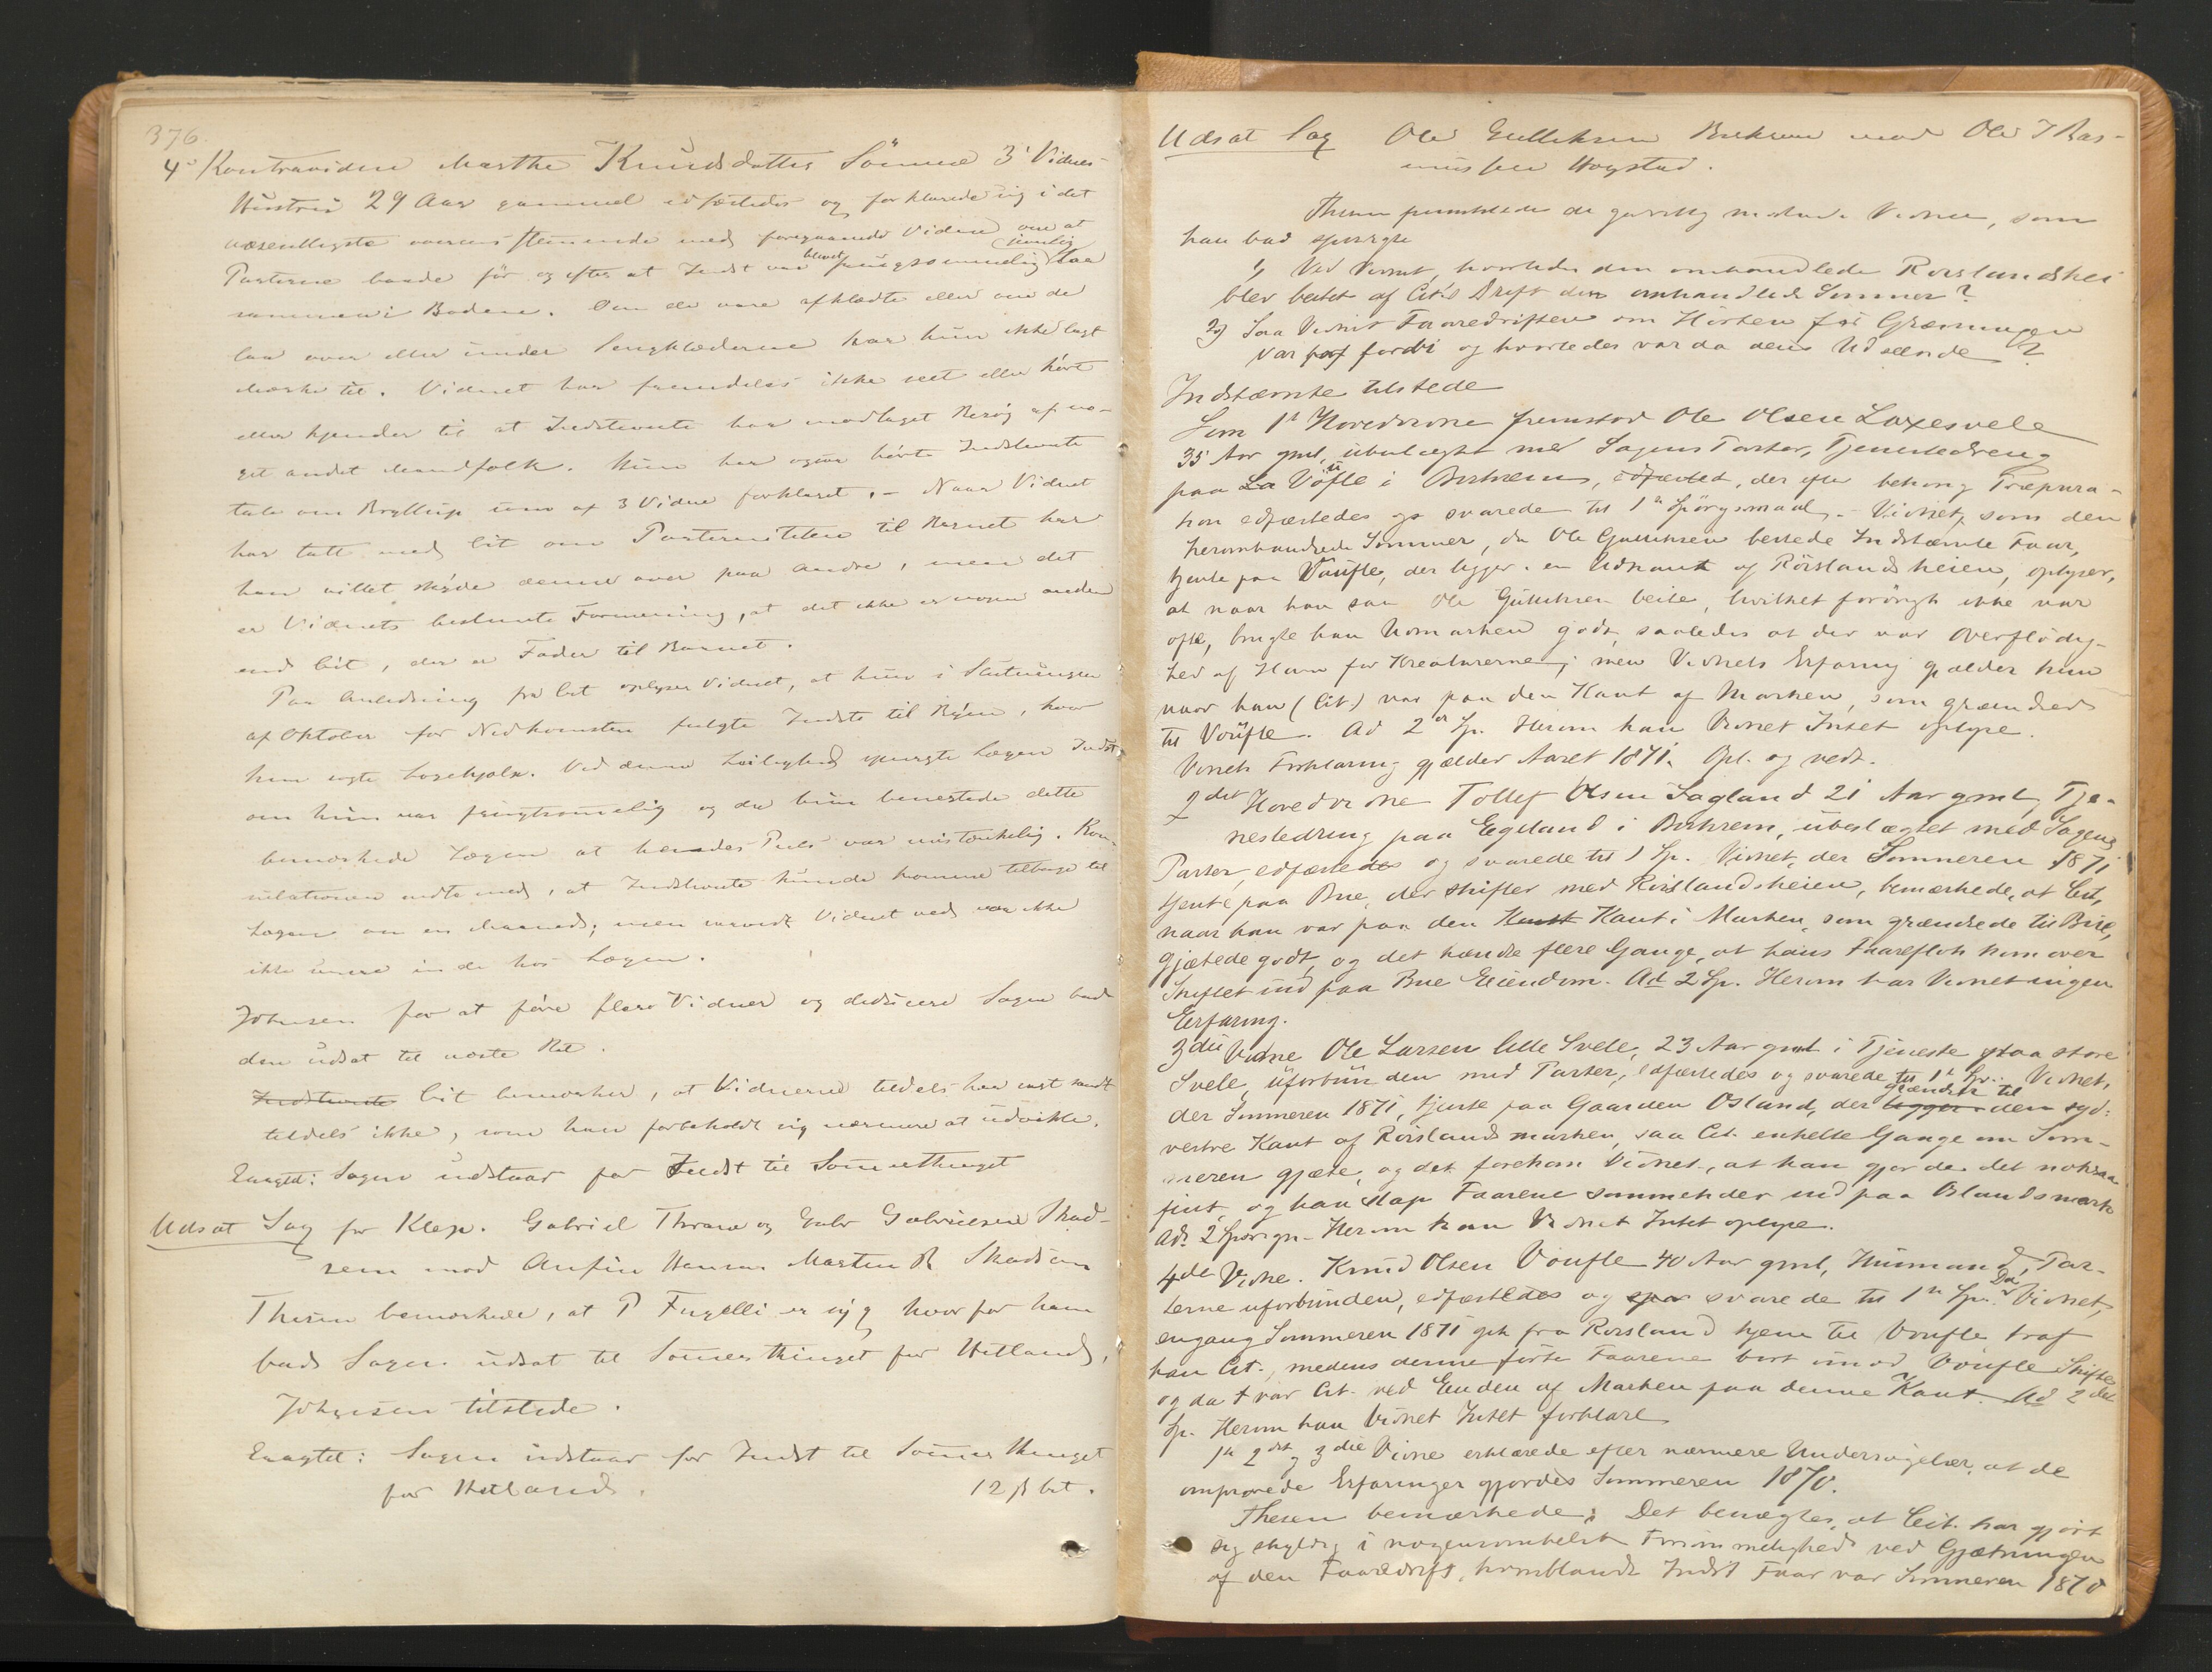 376.
4de Kontravidne Marthe Knudsdatter Sömme 3die Vidnes
Hustru 29 Aar gammel edfæstedes og forklarede sig i det
væsentligste overensstemmende med foregaaende Vidne om at
Parterne baade för og efter at Indst var blevet frugtsommelig jevnlig laa
sammen i Boden. Om de vare afklædte eller om de
laa over eller under Sengklæderne har hun ikke lagt
Mærke til. Vidnet har fremdeles ikke seet eller hört
eller kjender til at Indstevnte har modtaget Besög af no-
get andet Mandfolk. Hun har ogsaa hört Indstevnte
tale om Bryllup som af 3 Vidne forklaret. - Naar Vidnet
har talt med Cit om Paterniteten til Barnet har
han villet skyde denne over paa andre, men det
er Vidnets bestemte Formening, at det ikke er nogen anden
end Cit, der er Fader til Barnet.
Paa Anledning fra Cit oplyser Vidnet, at hun i Slutningen
af Oktober för Nedkomsten fulgte Indste til Byen, hvor
hun sögte Lægehjælp. Ved denne Leilighed spurgte Lægen Indst
om hun var frugtsommelig og da hun benegtede dette
bemærkede Lægen at hendes Puls var mistænkelig. Kon-
sulationen endte med, at Indstevnte kunde komme tilbage til
Lægen om en Maaned; men saavidt Vidnet ved var ikke
ikke mere inde hos Lægen.
Johnsen for at före flere Vidner og deducere Sagen bad
den udsat til næste Ret.
Indstevnte Cit bemærker, at Vidnerne tildels har sagt sandt
tildels ikke, som han forbeholdt sig nærmere at udvikle.
Eragtet: Sagen udstaar for Indst til Sommerthinget
Udsat Sag fr Klep. Gabriel Thrane og Gabriel Gabrielsen Skad-
sem mod Anfin Hansen Marten R Skadsem
Thesen bemærkede, at P Fugelli er syg hvorfor han
bad Sagen udsat til Sommerthinget for Hetland,
Johnsen tilstede.
Eragtet: Sagen udstaar for Indst til Sommerthinget
for Hetland. 12 ß bet.
Udsat Sag Ole Gulliksen Birkrem mod Ole T Ras-
mussen Hogstad.
Thesen fremstillede de godvillig mödende Vidner, som
han bad spurgte
1) Ved Vidnet, hvorledes den omhandlede Rorslandshei
blev beitet af Cit's Drift den omhandlede Sommer?
2) Saa Vidnet Faaredriften om Hösten för Græsningen
var forbi og hvorledes var da dens Udseende?
Indstævnte tilstede
Som 1st Hovedvidne fremstod Ole Olsen Laxesvele
35 Aar gml, ubeslægtet med Sagens Parter, Tjenestedreng
paa La Voufle i Birkrem, edfæstet, der efter behörig Præpara-
tion edfæstedes og svarede til 1ste Spörgsmaal. - Vidnet, som den
heromhandlede Sommer, da Ole Gulliksen beitede Indstævnte Faar,
tjente paa Voufle, der ligger i en Udkant af Rörslandsheien, oplyser,
at naar han saa Ole Gulliksen beite, hvilket forövrigt ikke var
ofte, brugte han Udmarken godt, saaledes at der var Overflödig-
hed af Havn for Kreaturerne; men Vidnets Erfaring gjælder kun
naar han (Cit.) var paa den Kant af Marken, som grændsed
til Voufle. Ad 2det Sp. Herom kan Vidnet Intet oplyse.
Vidnets Forklaring gjælder Aaret 1871. Opl. og vedt.
2det Hovedvidne Tollef Olsen Sagland 21 Aar gml, Tje-
nestedreng paa Egeland i Birkrem, ubeslægtet med Sagens
Parter, edfæstedes og svarede til 1 Sp. Vidnet, der Sommeren 1871
tjente paa Bue, der skifter med Rörslandsheien, bemærkede, at Cit,
naar han var paa den Kant Kant i Marken, som grændsede til Bue,
gjætede godt, og det hændte flere Gange, at hans Faareflok kom over
Skiftet ind paa Bue Eiendom. Ad 2 Sp. Herom har Vidnet ingen
Erfaring.
3die Vidne Ole Larsen lille Svele, 23 Aar gml i Tjeneste paa store
Svele, uforbunden med Parter, edfæstedes og svarede til 1st Sp. Vidnet,
der Sommeren 1871, tjente paa Gaarden Osland, der ligger grændser til den syd-
vestre Kant af Rörslandsmarken, saa Cit. enkelte Gange om Som-
meren gjæte, og det forekom Vidnet, at han gjorde det noksaa
fint, og han slap Faarene sommetider ind paa Oslandsmark
Ad. 2 Spörgs. - Herom kan Vidnet Intet oplyse.
4de Vidne. Knud Olsen Voufle 40 Aar gml, Husmand, Par-
terne uforbunden, edfæstedes og spar svarede til 1st Sp. Da Vidnet,
engang Sommeren 1871 gik fra Rorsland hjem til Voufle traf
han Cit., medens denne förte Faarene bort imod Voufle Skifte
og da var Cit. ved Enden af Marken paa denne Kant. Ad 2det
Sp. Herom kan Vidnet Intet forklare
1st 2det og 3die Vidne erklærede efter nærmere Undersögelser, at de
omprovede Erfaringer gjordes Sommeren 1870.
Thesen bemærkede: Det benægtes, at Cit. har gjort
sig skyldig i nogensomhelst Forsömmelighed ved Gjætningen
af den Faaredrift, hvoriblandt Indst Faar var Sommeren 1870